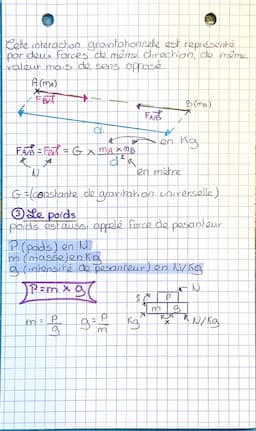 Cette interaction gravitationnelle est représenté
par deux forces de même direction, de même
valeur mais de sens opposé.
A(mA)
FB/A
FA/B
B(mB)
d
en Kg
FA/B = FB/A = G x mA x mB / d²
N
en mètre
G = (constante de gravitation universelle)
③ Le poids
poids est aussi appelé force de pesanteur
P (poids) en N
m (masse) en Kg
g (intensité de pesanteur) en N/Kg
P = m x g
m = P/g g = P/m
N
P
m g
x
Kg N/Kg